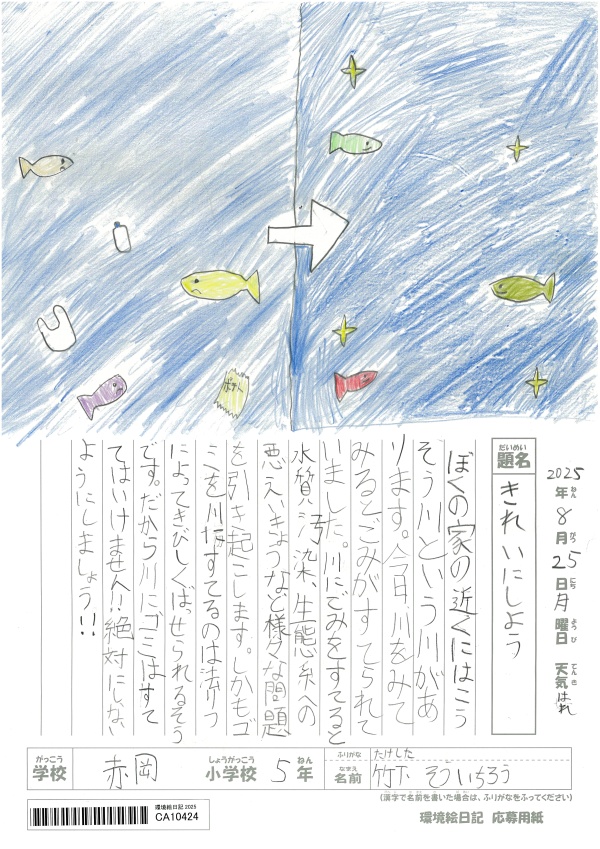 ポテト
2025年ねん8月がつ25日にち月曜日ようび 天気てんき はれ
題名だいめい きれいにしよう
ぼくの家の近くにはこう
そう川という川があ
ります。今日、川をみて
みるとごみがすてられて
いました。川にごみをすてると
水質汚染、生態系への
悪えいきょうなど様々な問題
を引き起こします。しかもゴ
ミを川にすてるのは法りつ
によってきびしくばっせられるそう
です。だから川にゴミはすて
てはいけません!!絶対にしない
ようにしましょう!!
がっこう 学校 赤岡 しょうがっこう 小学校 5 ねん 年
ふりがな たけした
なまえ 名前 竹下 そういちろう
(漢字で名前を書いた場合は、ふりがなをふってください)
環境絵日記 2025
CA10424
環境絵日記 応募用紙